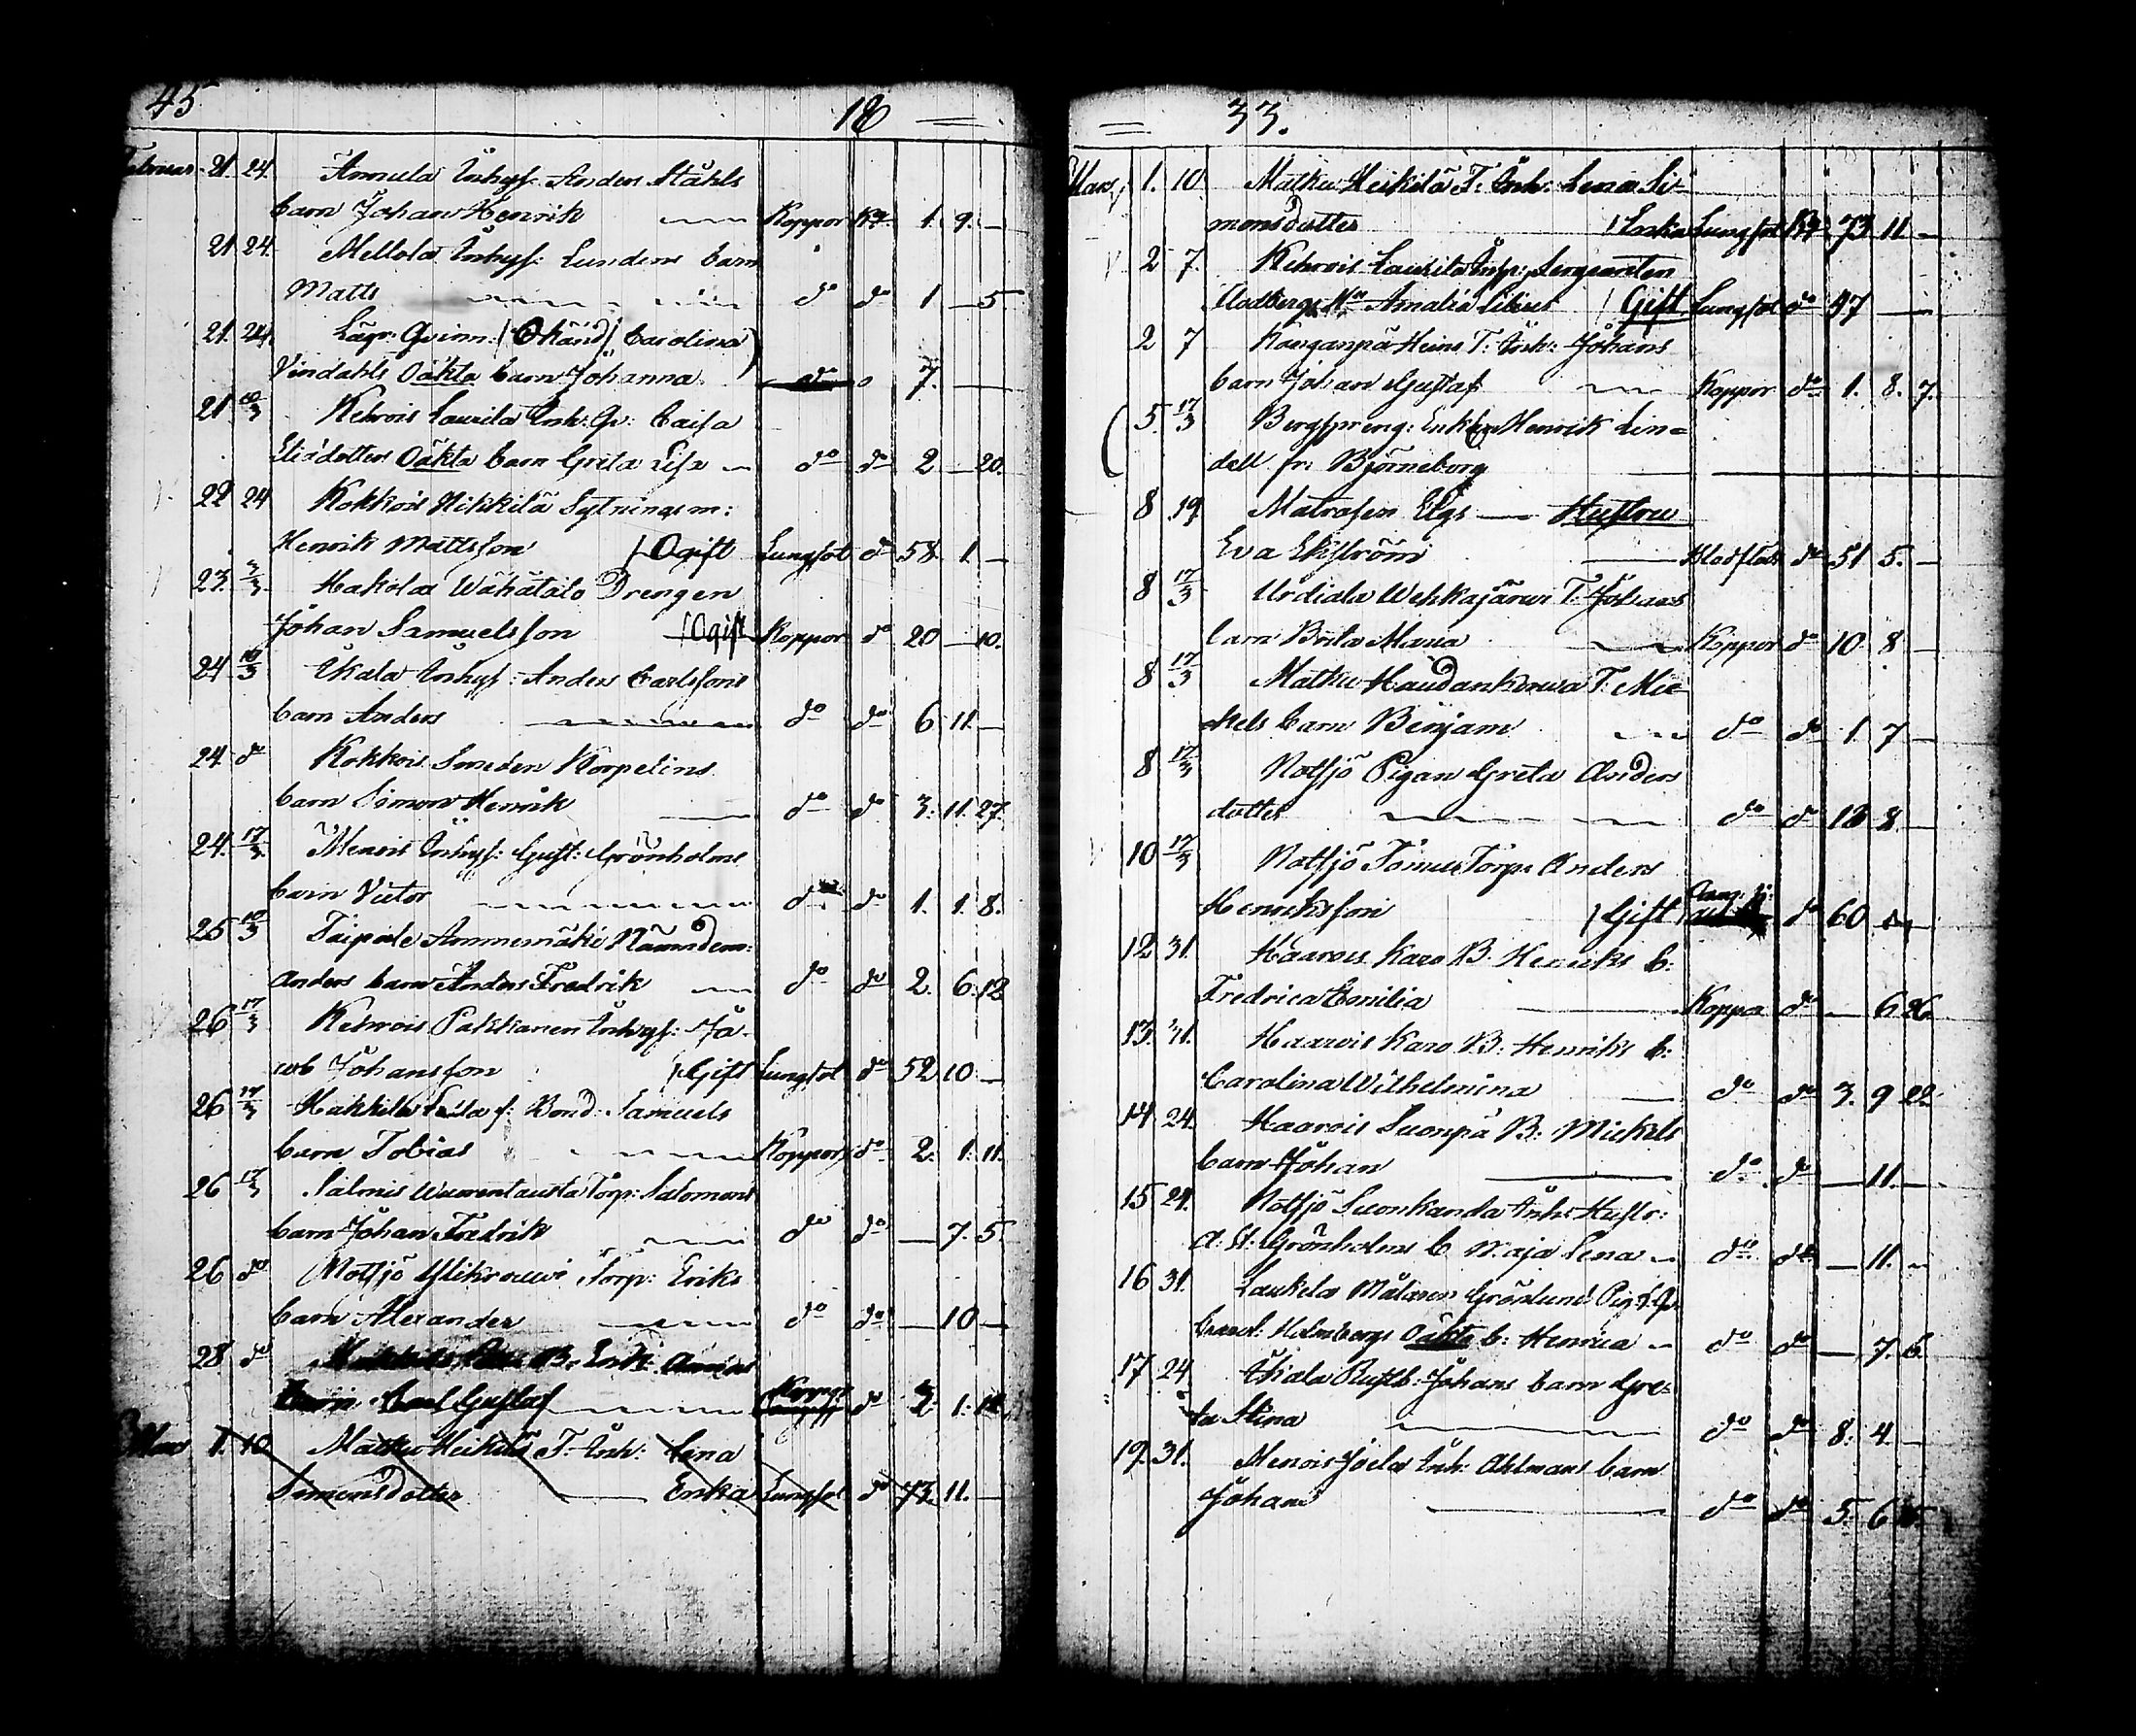 45
18 =
Februar. 21. 24. Annula Inhys. Anders Ståhls
barn Johan Henrik Koppor Ka 1. 9. —
21 24. Mellola Inhys: Lundens barn
Matts do do 1 — 5
21. 24. Lägr: Qvinn: (Okänd) Carolina
Vindahls Oäkta barn Johanna 7. —
21 10/3 Kehrois Laurila Inh: Qv: Caisa
Oäkta barn Greta Lisa do do 2 — 20.
22 24 Kokkois Nikkilä Sytningsm:
Henrik Mattsson / Ogift Lungsot do 58. 1 —
23. 3/3. Hakola Wähätalo Drengen
Johan Samuelsson / Ogift Koppor do 20 — 10.
24 10/3 Ukala Inhys: Anders Carlssons
barn Anders do do 6 11. —
24. do Kokkois Smeden Korpelins
barn Simon Henrik do do 3. 11. 27.
24. 17/3. Menois Inhys: Gust: Grönholms
barn Victor do do 1. 1. 8.
25 10/3 Taipale Ammemäki Nämndem:
Anders barn Anders Fredrik do do 2. 6. 12
26 17/3 Kehrois Pakkanen Inhys: Ja-
cob Johansson / Gift Lungsot do 52 10 —
26 17/3 Hakkila Bond: Samuels
barn Tobias Koppor do 2. 1. 11.
26 17/3 Salmis Wuorentausta Torp: Salomons
barn Johan Fredrik do do — 7. 5
26 do Notsjö Ylikrouvi Torp: Eriks
barn Alexander do do — 10 —
28. do B. Erik
barn Carl Gustaf Koppor do 2. 1.
Mars 1. 10. Matku Heikilä T: Inh: Lena
Simonsdotter — Enka Lungsot do 73. 11. —
= 33.
Mars 1. 10 Matku Heikilä T: Inh: Lena Si-
monsdotter / Enka Lungsot Ka 73 11 —
2 7. Kehrois Laurila Inh: Sergeanten
Amalia / Gift Lungsot do 47 —
2 7 Kanganpä Heins T: Inh: Johans
barn Johan Gustaf Koppor do 1. 8. 7.
5. 17/3 Bergspreng: Enkling Henrik Lin=
dell fr: Björneborg
8 19 Matrosen Elgs — Hustru
Eva Ekström do 51 5. —
8 17/3 Urdiala Wehkajärvi T: Johans
barn Brita Maria Koppor do 10. 8 —
8 17/3 Matku Haudankorwa T: Mic-
kels barn Benjam do do 1. 7 —
8 17/3 Notsjö Pigan Greta Anders
dotter do do 18 8. —
10 17/3 Notsjö Torp: Anders
Henriksson / Gift do 60 —
12 31. Haarois Karo B. Henriks b:
Fredrica Emilia Koppor do — 6 26.
13. 31. Haarois Karo B: Henriks b:
Carolina Wilhelmina do do 3. 9 22.
14. 24. Haarois Suonpä B: Mickels
barn Johan do do — 11. —
15 24. Notsjö Suonkanda Inh: Hustr:
Grönholms b. Maja Lena do do — 11. —
16 31. Laukela Målaren Grönlund
Holmbergs Oäkta b: Henrica do do — 7.
17 24 Ukala Rusth: Johans barn Gre-
ta Stina do do 8. 4. —
19. 31. Menois Joela Inh: Ahlmans barn
Johan do do 5. 6